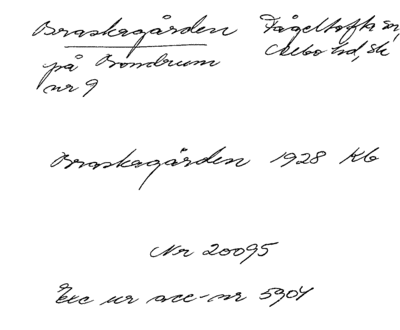 Braskagården Fågeltofta sn,
på Bondrum Albo hd, sk
nr 9
Braskagården 1928 Kb
Nr 20095
Exc ur acc-nr 5904